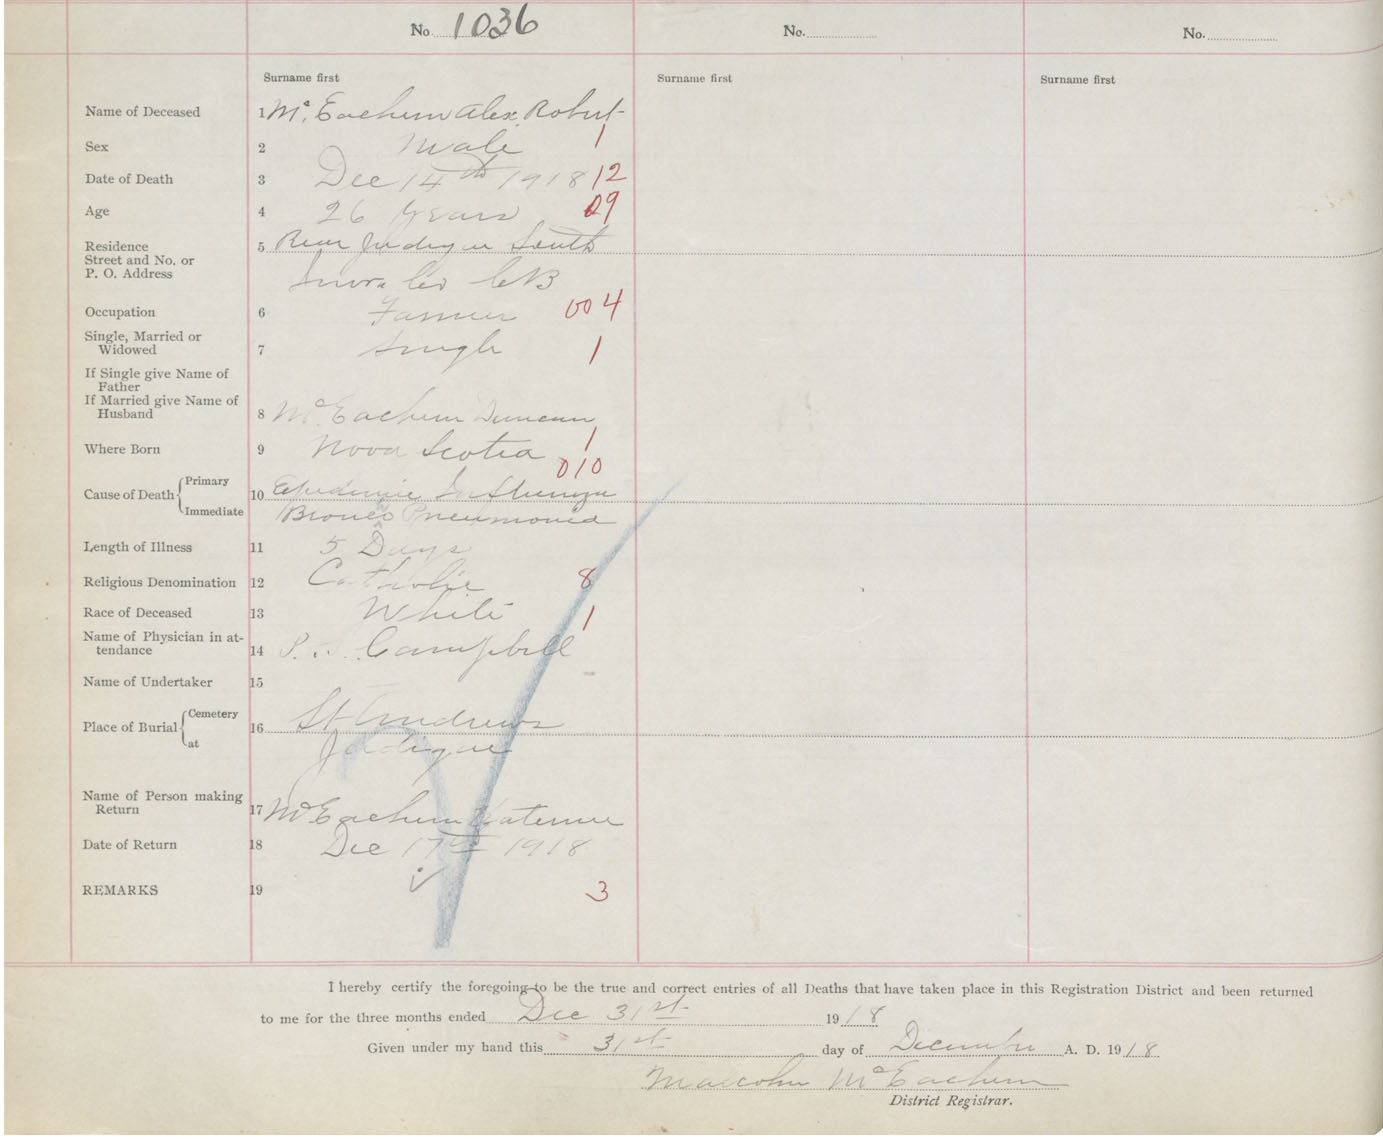 No. 1036 No. No.
Surname first Surname first Surname first
Name of Deceased 1 Mc. Eachern Alex. Robert
Sex 2 Male 1
Date of Death 3 Dec 14th 1918 12
Age 4 26 Years 09
Residence 5 Rear Judique South
Street and No. or
P. O. Address Inver. Co C B
Occupation 6 Farmer 004
Single, Married or
Widowed 7 Single 1
If Single give Name of
Father
If Married give Name of
Husband 8 McEachern Duncan
Where Born 9 Nova Scotia 1
010
Cause of Death Primary 10 Epidemic Influenza
Immediate Pneumonia
Length of Illness 11 5 Days
Religious Denomination 12 Catholic 8
Race of Deceased 13 White 1
Name of Physician in at-
tendance 14 P. Campbell
Name of Undertaker 15
Place of Burial Cemetery 16 St Andrews
at Judique
Name of Person making
Return 17 McEachern
Date of Return 18 Dec 17th 1918
REMARKS 19 3
I hereby certify the foregoing to be the true and correct entries of all Deaths that have taken place in this Registration District and been returned
to me for the three months ended Dec 31st 1918
Given under my hand this 31st day of December A. D. 1918
Malcolm McEachern
District Registrar.